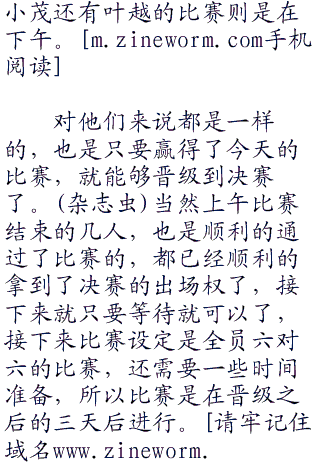 小茂还有叶越的比赛则是在
下午。[m.zineworm.com手机
阅读]
对他们来说都是一样
的，也是只要赢得了今天的
比赛，就能够晋级到决赛
了。(杂志虫)当然上午比赛
结束的几人，也是顺利的通
过了比赛的，都已经顺利的
拿到了决赛的出场权了，接
下来就只要等待就可以了，
接下来比赛设定是全员六对
六的比赛，还需要一些时间
准备，所以比赛是在晋级之
后的三天后进行。[请牢记住
域名www.zineworm.